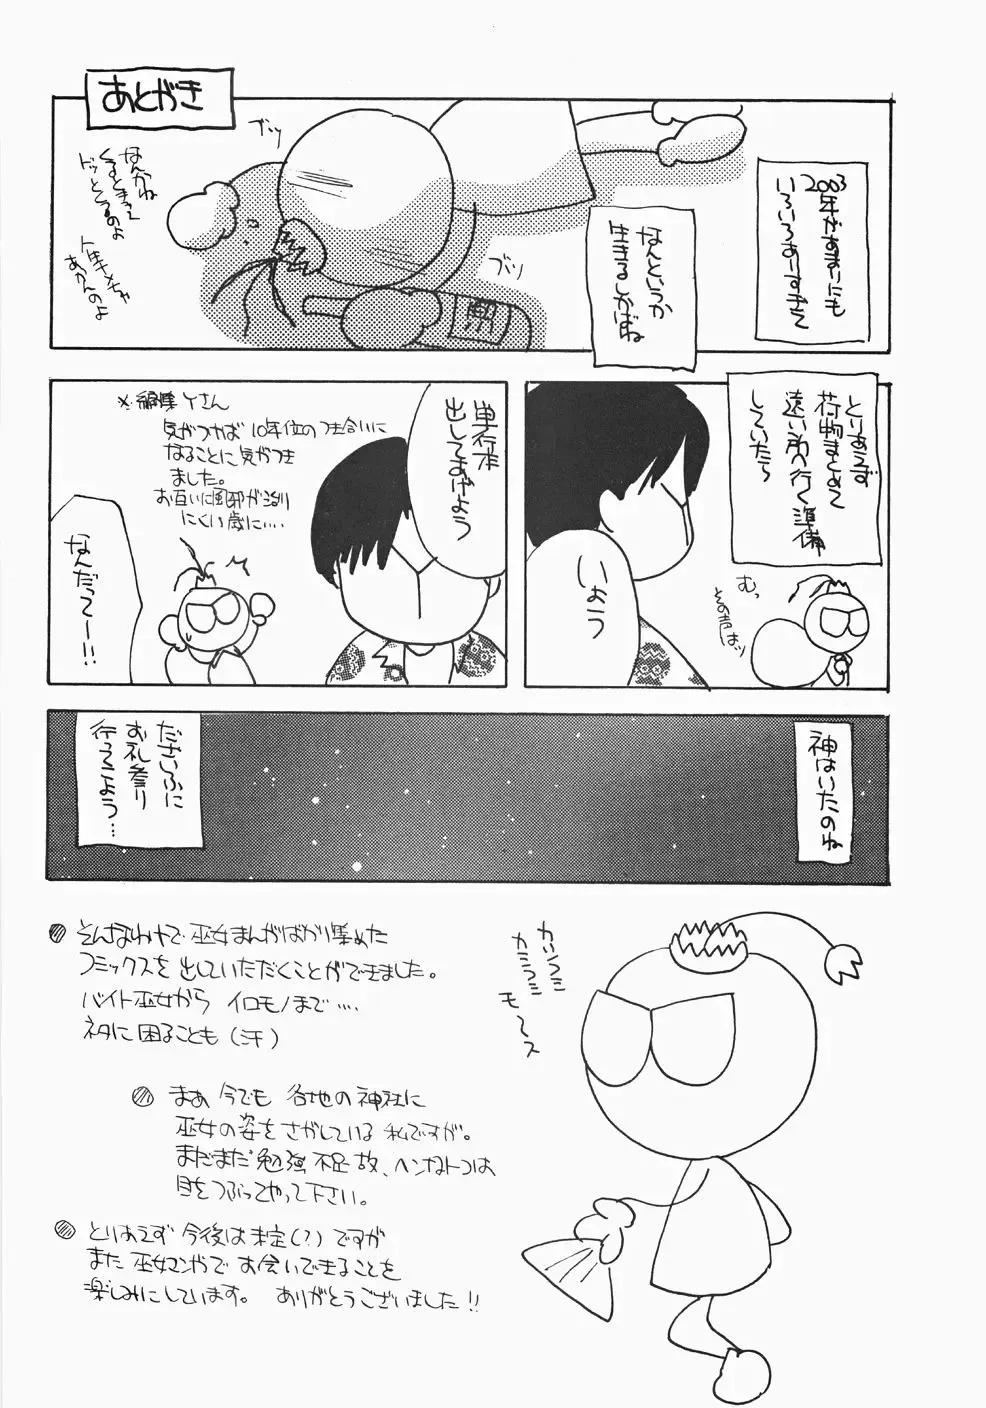 あとがき
2003
年があまりにも
いろいろありすぎて
なんというか
生きるしかばね
ブツ
ブツ
なんかね
くるときって
ドッとくるのよ
あかんのよ
とりあえず
荷物まとめて
遠い所へ行く準備
していたら
むっ
その声はッ
いよう
単行本
出してあげよう
※編集Yさん
気がつけば10年位のつき合いに
なることに気がつき
ました。
お互いに風邪が治り
にくい歳に‥‥
なんだってー!!
神はいたのね
だざいふに
お礼参り
行ってこよう…
そんなわけで巫女まんがばかり集めた
コミックスを出していただくことができました。
バイト巫女から イロモノまで‥‥
ネタに困ることも(汗)
まあ今でも 各地の神社に
巫女の姿をさがしている私ですが。
まだまだ勉強不足故、ヘンなトコは
目をつぶってやって下さい。
とりあえず今後は未定(?)ですが
また巫女マンガでお会いできることを
楽しみにしています。 ありがとうございました!!